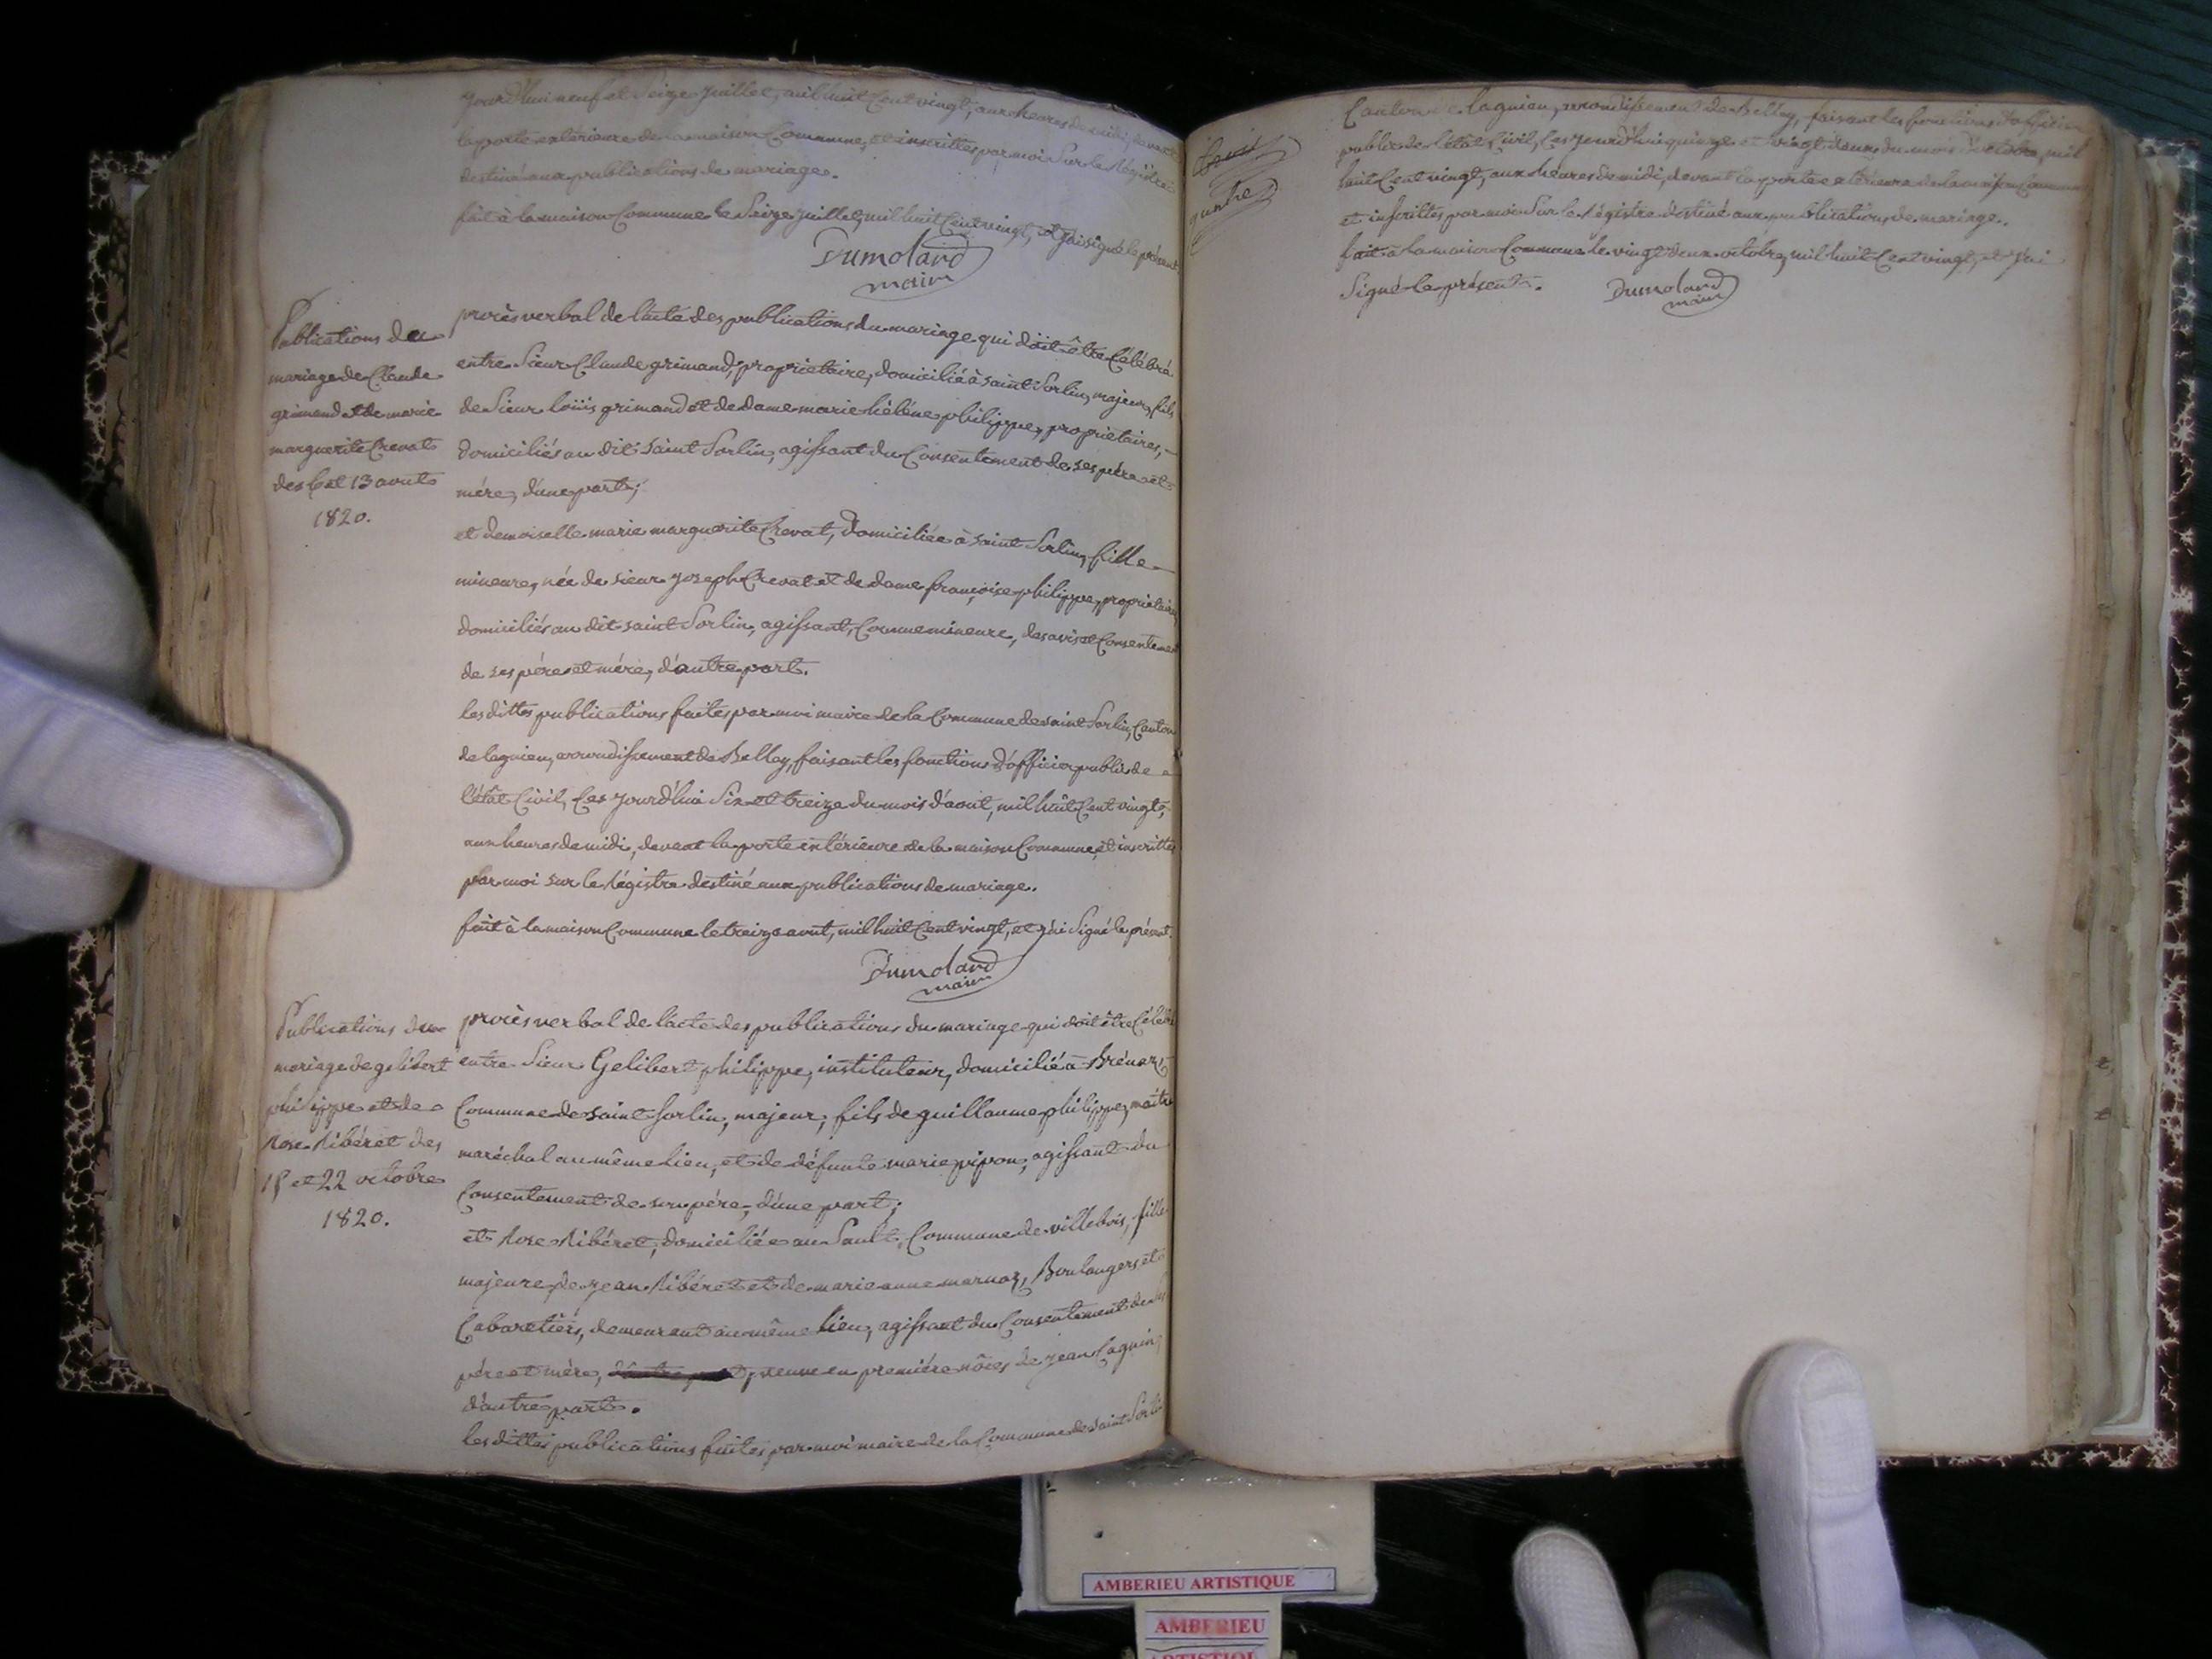 jourd'hui neuf et Seize juillet, mil huit Cent vingt, aux heures de midi, devant
la porte extérieure de la maison Commune, et inscrittes par moi Sur le Régistre
destiné aux publications de mariage.
fait à la maison Commune le Seize juillet, mil huit Cent vingt, et j'ai signé le présent
Dumoland
maire
Publications du
mariage de Claude
grimand et de marie
marguerite Crevat
des 6 et 13 aout
1820.
procès verbal de l'acte des publications du mariage qui doit être Célébré
entre Sieur Claude grimand, propriétaire, domicilié à saint Sorlin, majeur, fils
de Sieur loüis grimand et de dame marie hélène philippe, propriétaires,
domiciliés au dit Saint Sorlin, agissant du Consentement de ses père et
mère, d'une part;
et demoiselle marie marguerite Crevat, domiciliée à saint Sorlin, fille
mineure, née de sieur joseph Crevat et de dame françoise philippe, propriétaires
domiciliés au dit saint Sorlin, agissant, Comme mineure, des avis et Consentement
de ses père et mère, d'autre part.
les dittes publications faites par moi maire de la Commune de saint Sorlin, Canton
de lagnieu, arrondissement de Belley, faisant les fonctions d'officier public de
l'êtât Civil, Ces jourd'hui Six et treize du mois d'aout, mil huit Cent vingt,
aux heures de midi, devant la porte extérieure de la maison Commune, et inscrittes
par moi sur le Régistre destiné aux publications de mariage.
fait à la maison Commune le treize aout, mil huit Cent vingt, et j'ai Signé le présent.
Dumoland
maire
Publications du
mariage de gelibert
philippe et de
Rose Ribéret des
15 et 22 octobre
1820.
procès verbal de l'acte des publications du mariage qui doit être Célébré
entre Sieur Gelibert philippe, instituteur, domicilié à Brénaz,
Commune de saint Sorlin, majeur, fils de guillaume philippe, maître
maréchal au même lieu, et de défunte marie pipon, agissant du
Consentement de son père, d'une part;
et Rose Ribéret, domiciliée au Sault, Commune de villebois, fille
majeure de jean Ribéret et de marie anne marnaz, Boulangers et
Cabaretiers, demeurant au même lieu, agissant du Consentement de ses
père et mère, d'autre part, veuve en première nôces de jean lagnin,
d'autre part.
les dittes publications faites par moi maire de la Commune de Saint Sorlin
Canton de lagnieu, arrondissement de Belley, faisant les fonctions d'officier
public de l'êtât Civil, Ces jourd'hui quinze et vingt deux du mois d'octobre, mil
huit Cent vingt, aux heures de midi, devant la porte extérieure de la maison Commune
et inscrittes par moi Sur le Régistre destiné aux publications de mariage.
fait à la maison Commune le vingt deux octobre, mil huit Cent vingt, et j'ai
Signé le présent.
Dumoland
maire
AMBERIEU ARTISTIQUE
AMBERIEU
ARTISTIQUE